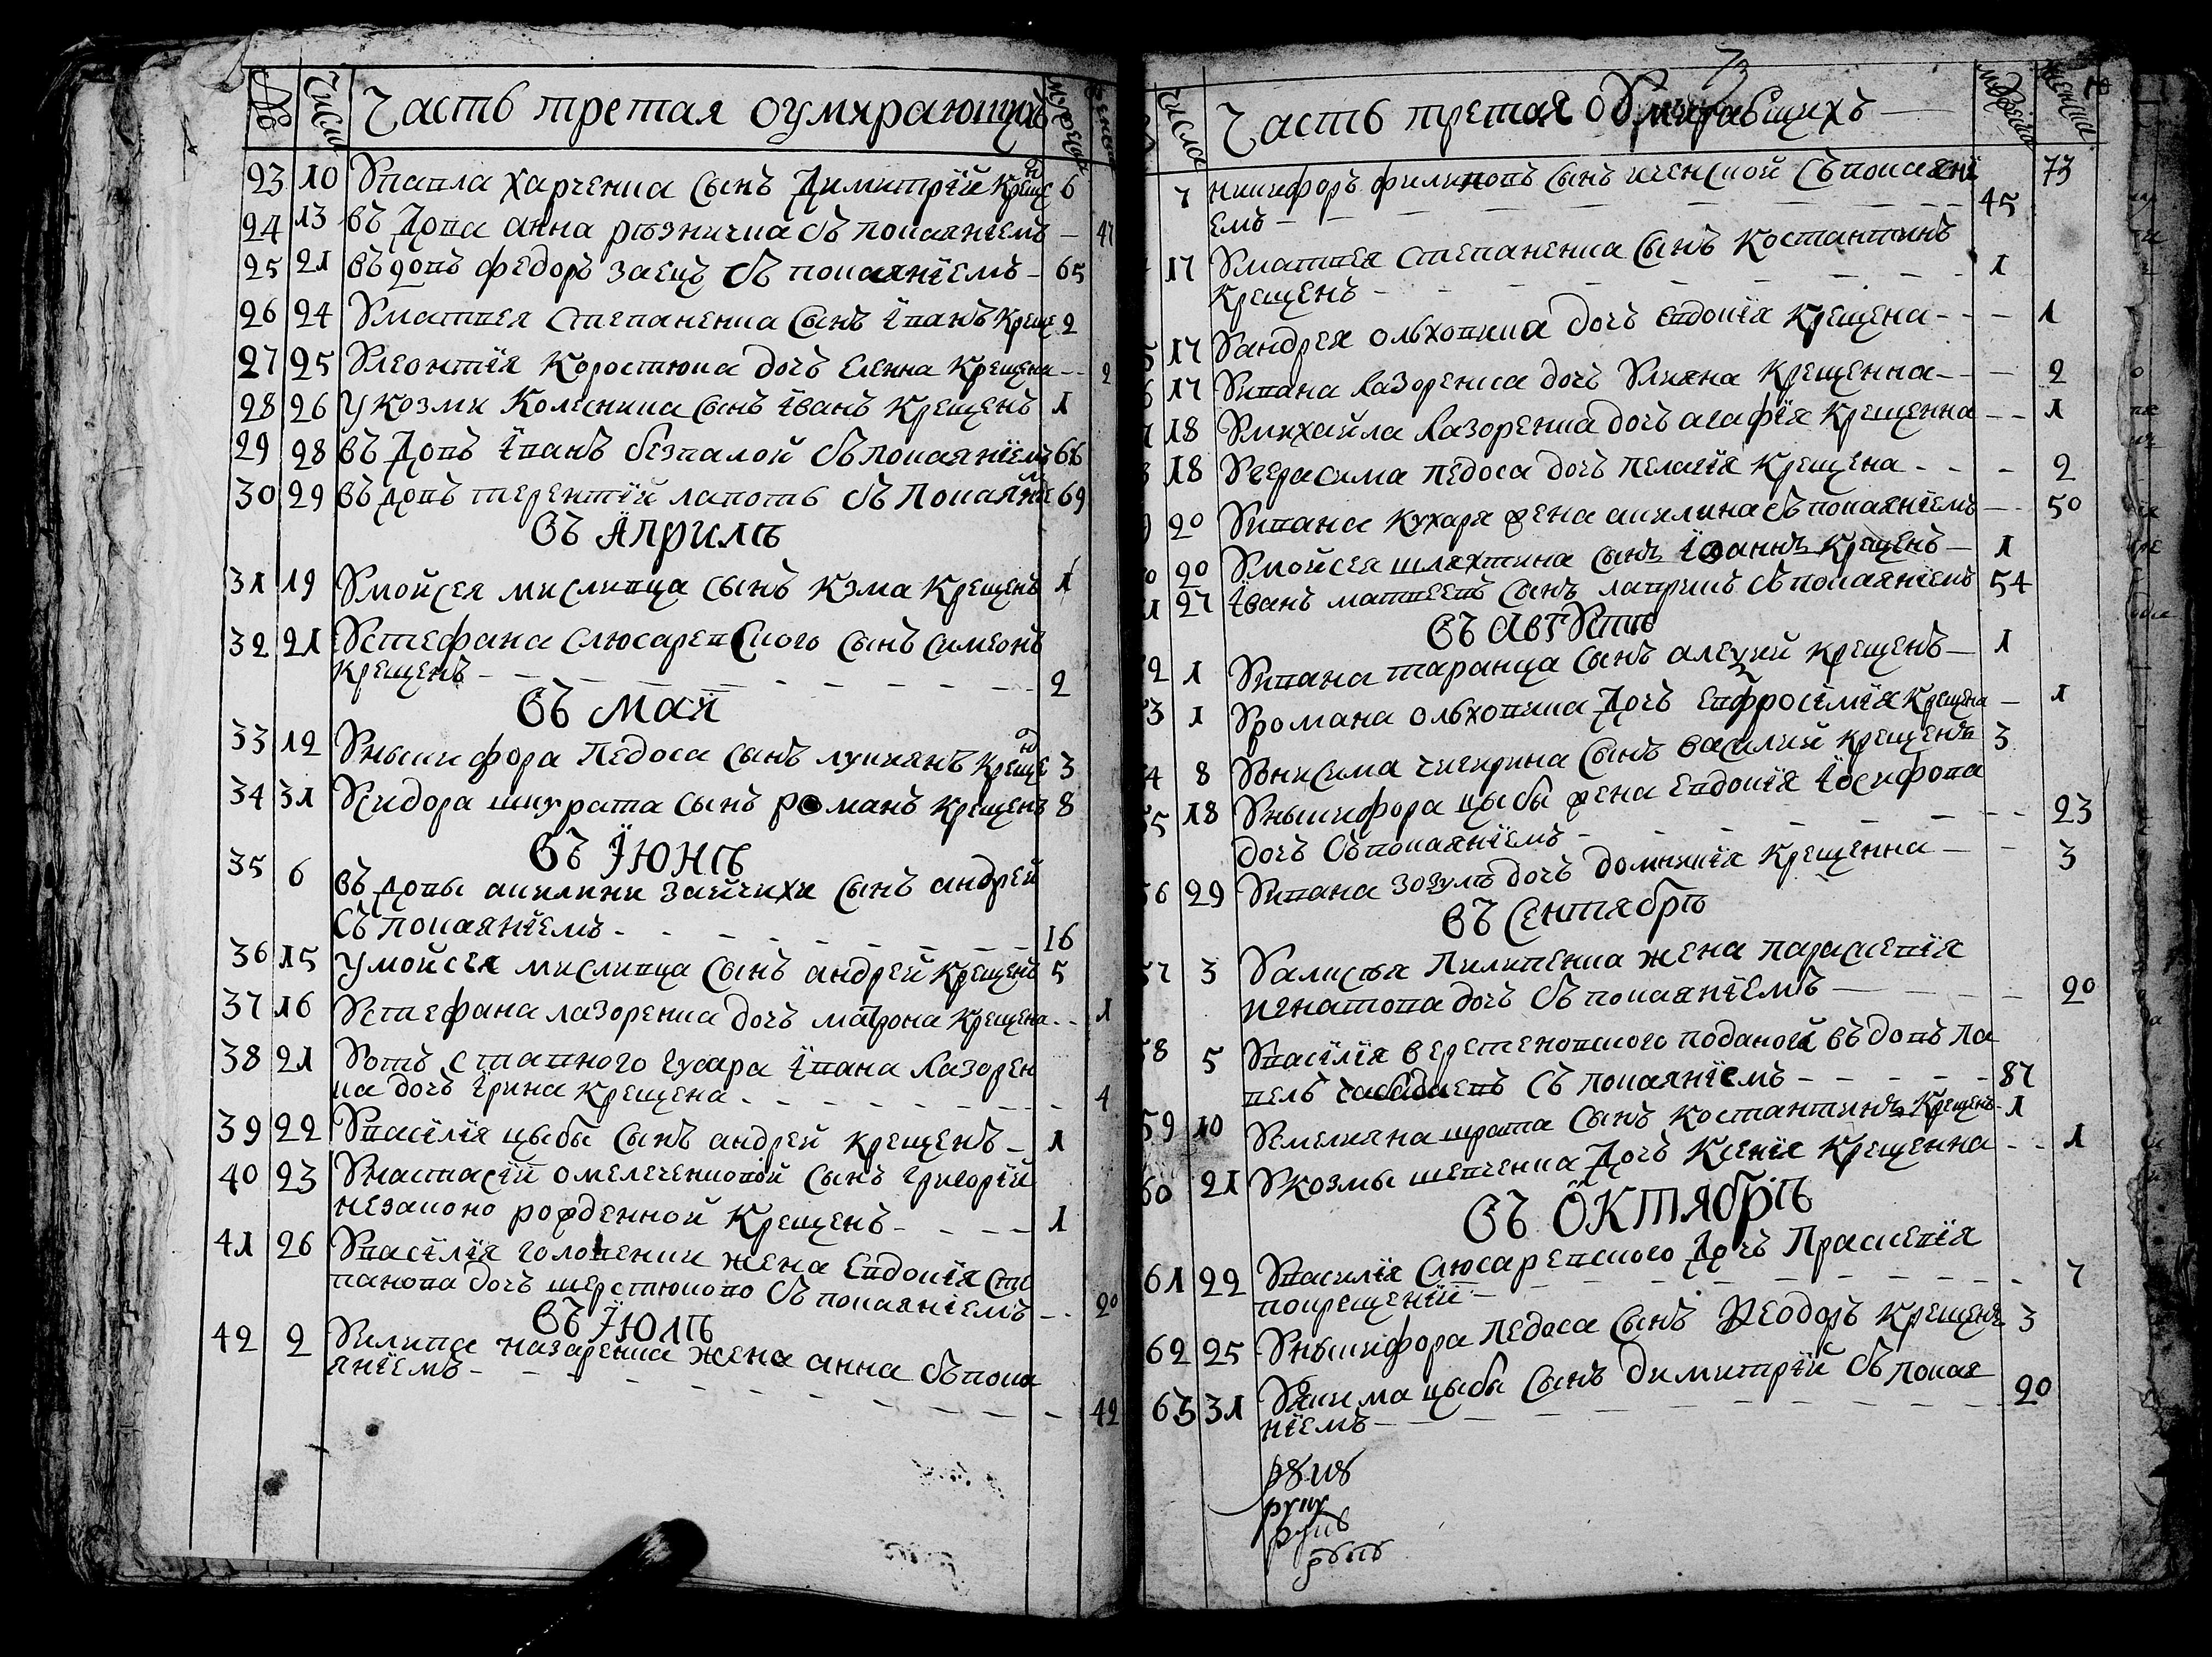 № Числа Часть третая оумирающихъ
23 10 Ѹ павла харченка сынъ Димитрїй крещенъ 6
24 13 въдова анна резничка съ покаянїемъ — 47
25 21 въдовъ федоръ заецъ съ покаянїемъ — 65
26 24 Ѹ матвея степаненка сынъ їванъ креще 2
27 25 Ѹ леонтїя коростюка дочъ елена крещена - - 2
28 26 У козми колесника сынъ їванъ крещенъ 1
29 28 въдовъ їванъ безпалой съ покаянїемъ 66
30 29 въдовъ терентїй лапоть съ покаянїе 69
въ Априлѣ
31 19 Ѹ мойсея мисливца сынъ кзма крещенъ 1
32 21 Ѹ стефана слюсаревского сынъ симеонъ
крещенъ - - - 2
въ маӥ
33 12 Ѹ ныкифора педоса сынъ лукиянъ крещенъ 3
34 31 Ѹ сидора шкурата сынъ романъ крещенъ 8
въ Їюнѣ
35 6 въдовы акилини зайчихи сынъ андрей
съ покаянїемъ - - - 16
36 15 У мойсея мисливца сынъ андрей крещенъ 5
37 16 Ѹ стефана лазоренка дочъ матрона крещена - - 1
38 21 Ѹ отъставного гусара ївана лазорен
ка дочъ їрина крещена - - - 4
39 22 Ѹ васїлїя цыбы сынъ андрей крещенъ - 1
40 23 Ѹ настасїй омелеченковой сынъ григорїй
незаконо рожденной крещенъ - - - 1
41 26 Ѹ васїлїя головенки жена евдокїя сте
панова дочъ шерстюково съ покаянїемъ - - 20
въ Їюлѣ
42 2 Ѹ илипа назаренка жена анна съ пока
янїемъ - - - 42
73
Числа Часть третая оѸмиравщихъ —
7 никифоръ филиповъ сынъ иченской съ покаянї 73
емъ - - - 45
17 Ѹ матвея степаненка сынъ костантинъ
крещенъ - - - 1
17 Ѹ андрея ольховика дочъ евдокїя крещена - - - 1
17 Ѹ ивана лазоренка дочъ Ѹлияна крещенна - - 2
18 Ѹ михайла лазоренка дочъ агафїя крещенна - - 1
18 Ѹ герасима педоса дочъ пелагїя крещена - - - 2
20 Ѹ ивана кухаря жена акилина съ покаянїемъ - - 50
20 Ѹ мойсея шляхтина сынъ їоаннъ крещенъ - 1
27 їванъ матвеевъ сынъ лавришъ съ покаянїемъ 54
въ АвгѸстѣ
1 Ѹ ивана таранца сынъ алецӥй крещенъ - 1
1 Ѹ романа ольховика дочъ евфросїмїя крещена - 1
8 Ѹ онисима чигирина сынъ василий крещенъ 3
18 Ѹ ныкифора цыбы жена евдокїя їосифова
дочъ съ покаянїемъ - - - 23
56 29 Ѹ ивана зозулѣ дочъ домникїя крещенна - - 3
въ Сентябрѣ
57 3 Ѹ алисѣя пилипенка жена параскевїя
игнатова дочъ съ покаянїемъ - - - 20
58 5 Ѹ васїлїя веретеновского поданого въдовъ па
велъ съ покаянїемъ - - - 87
59 10 Ѹ емелияна сынъ костантинъ крещенъ - 1
60 21 Ѹ козмы шевченка дочъ ксенїя крещенна - - 1
въ Октябрѣ
61 22 Ѹ василїя слюсаревского дочъ праскевїя
покрещенїй - - - 7
62 25 Ѹ ныкифора педоса сынъ Ѳеодоръ крещенъ 3
63 31 Ѹ якима цыбы сынъ димитрїй съ покая
нїемъ - - - 20